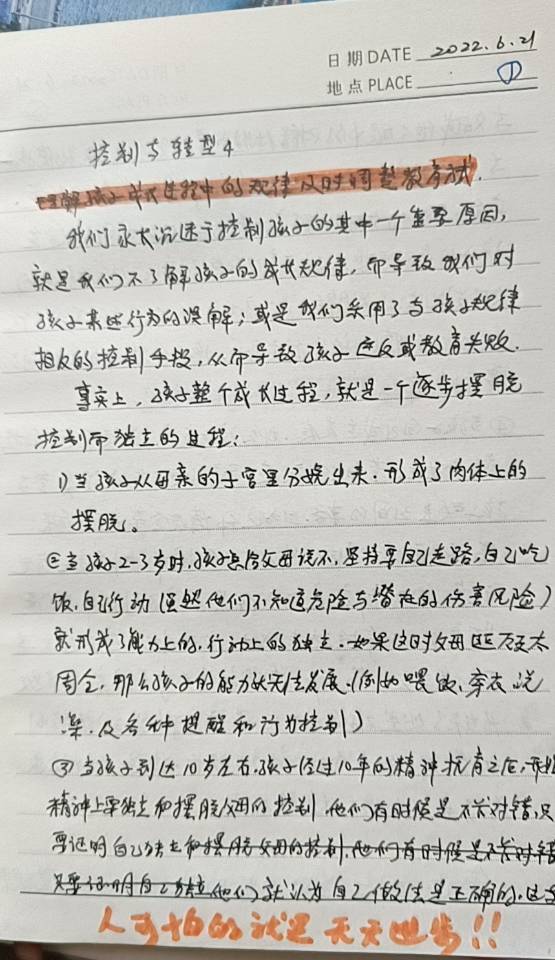 日期 DATE 2022.6.21
地点 PLACE ①
控制与转型4
理解孩子成长过程中的规律及时调整教育方式.
我们家长沉迷于控制孩子的其中一个重要原因,
就是我们不了解孩子的成长规律,而导致我们对
孩子某些行为的误解;或是我们采用了与孩子规律
相反的控制手段,从而导致孩子逆反或教育失败.
事实上,孩子整个成长过程,就是一个逐步摆脱
控制而独立的过程:
1)当孩子从母亲的子宫里分娩出来.形成了肉体上的
摆脱。
②当孩子2-3岁时,孩子总给父母说不,坚持要自己走路,自己吃
饭,自己行动(虽然他们不知道危险与潜在的伤害风险)
就形成了能力上的,行动上的独立.如果这时父母照顾太
周全,那么孩子的能力就无法发展.(例如喂饭、穿衣、洗
澡.及各种提醒和行为控制)
③当孩子到达10岁左右,孩子经过10年的精神抚育之后,开始
精神上要独立和摆脱父母的控制.他们有时候是不分对错,只
要证明自己独立和摆脱父母的控制.他们有时候是不分对错
只要证明自己独立他们就认为自己做法是正确的.这
人可怕的就是天天进步!!